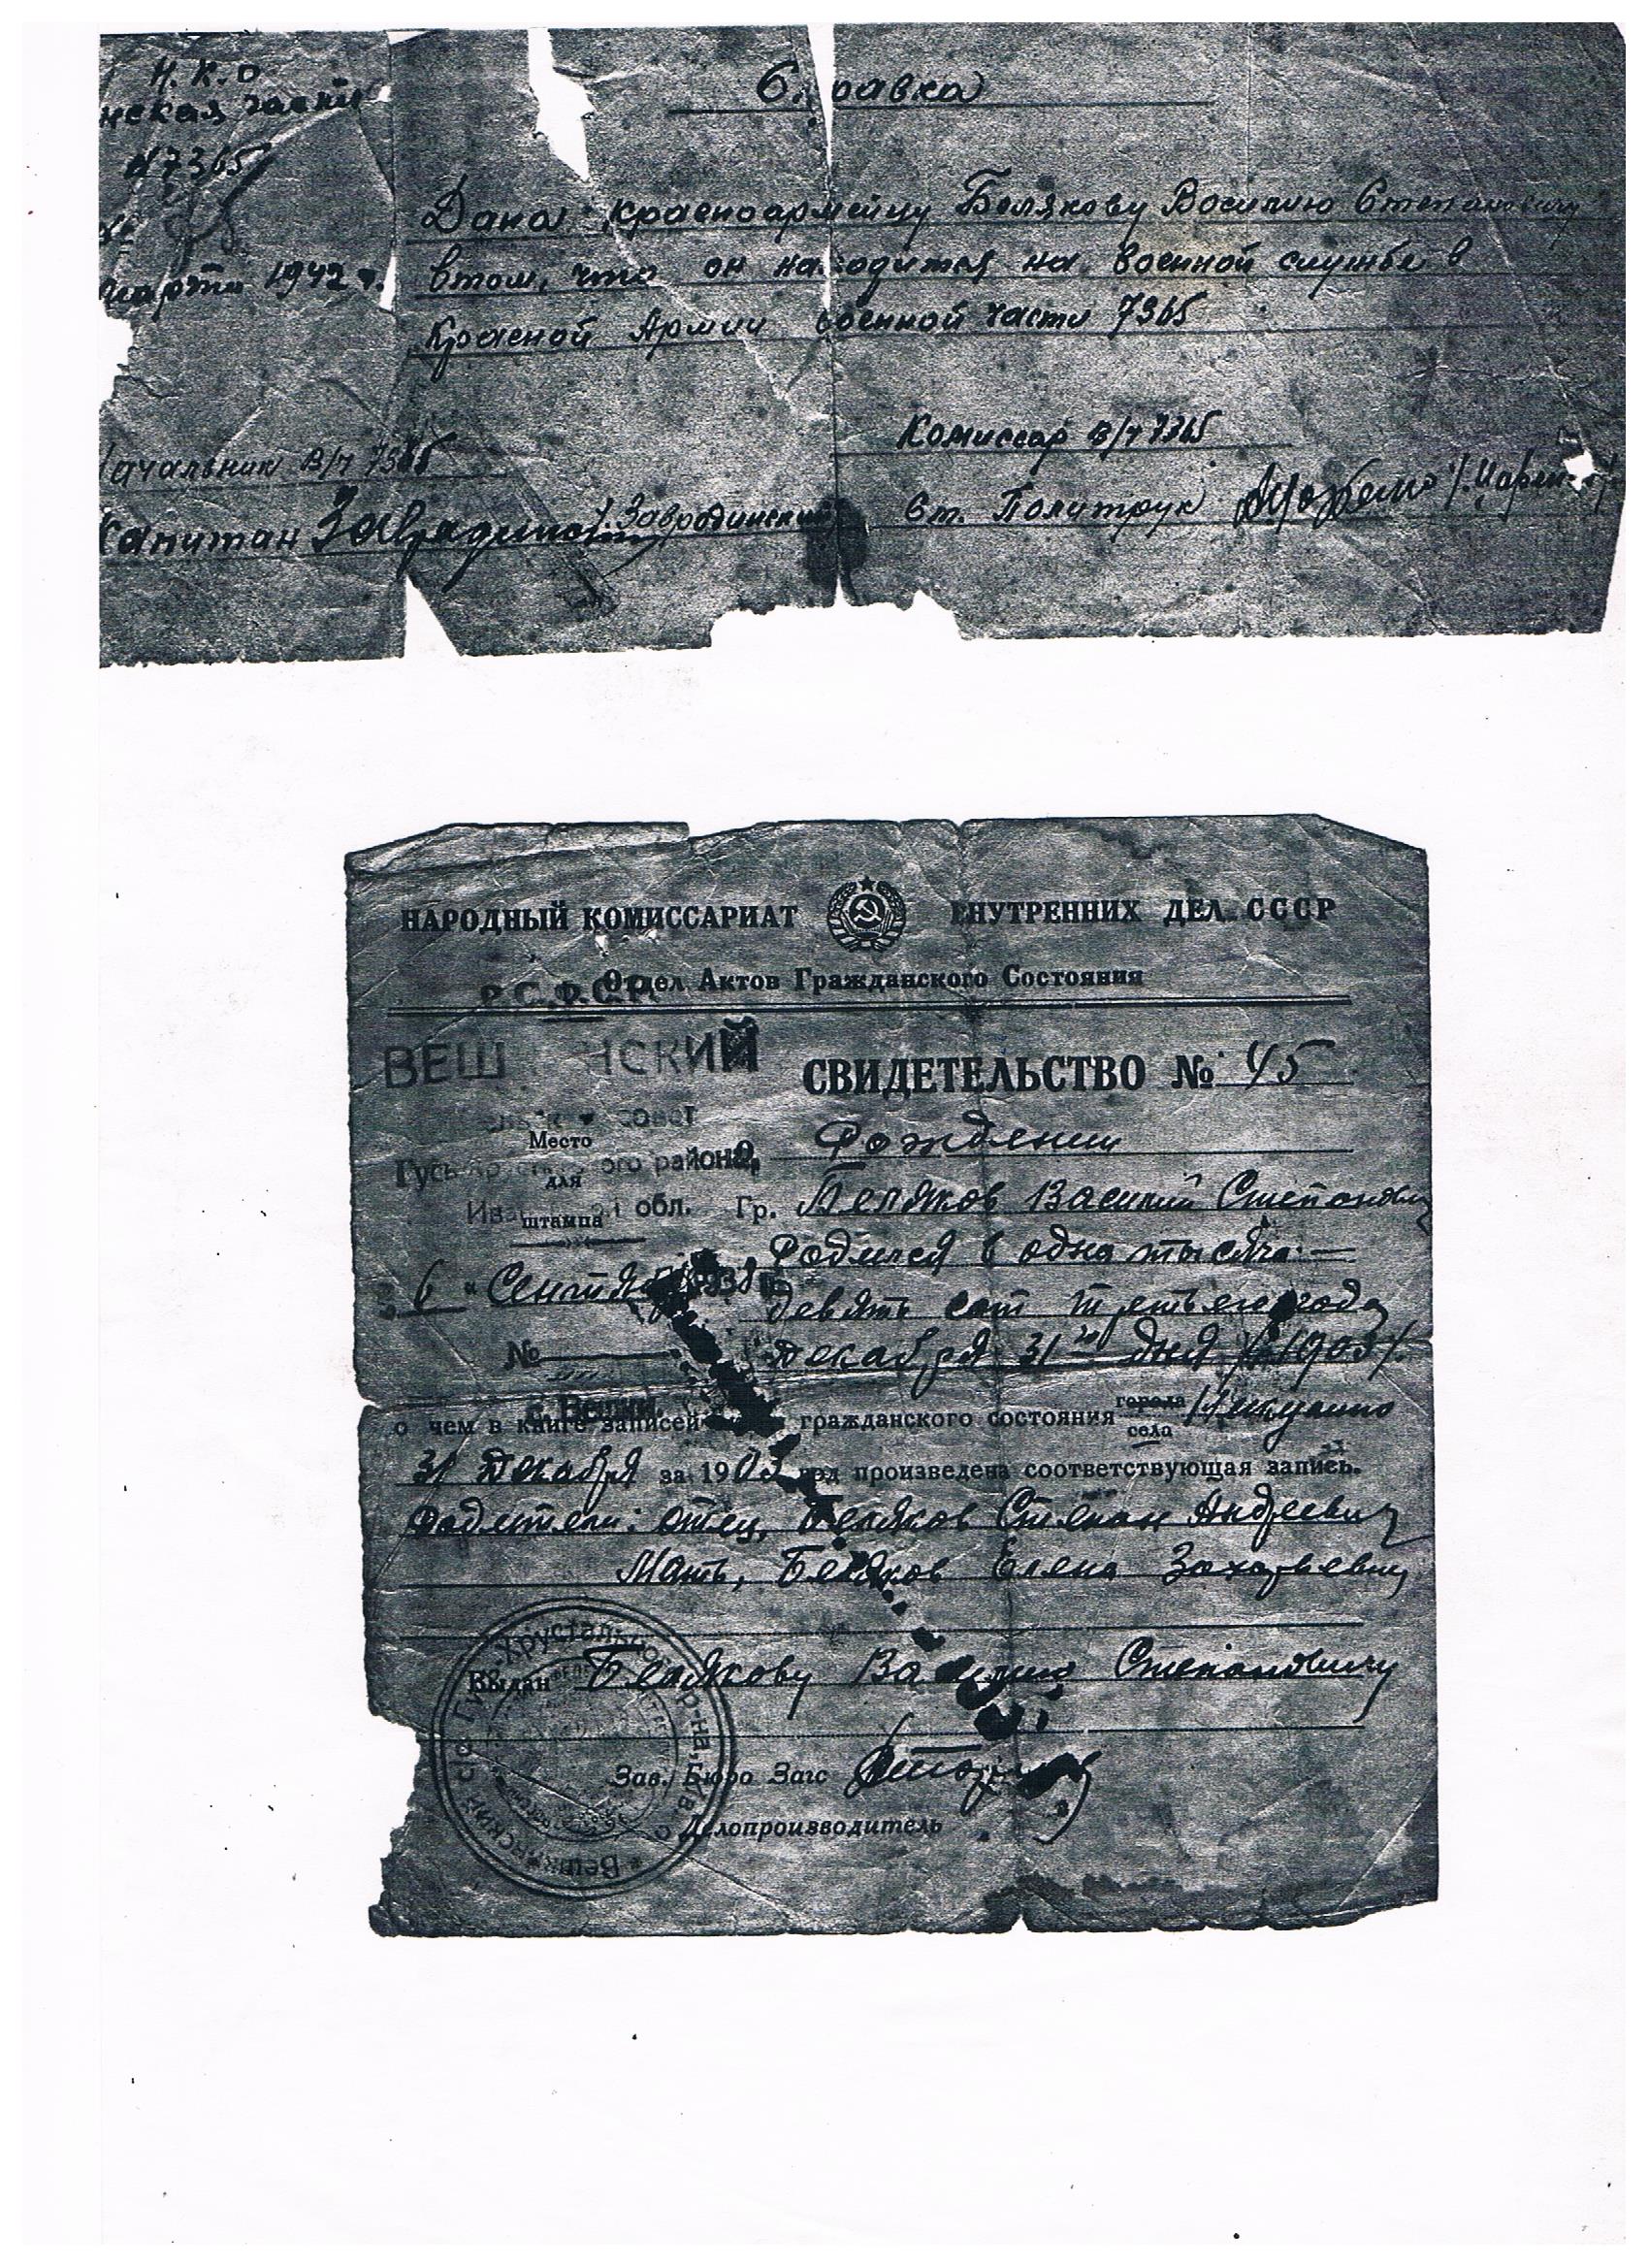 Н. К. О
нская части
№7365
марта 1942 г.
Справка
Дана красноармейцу Белякову Василию Степановичу
втом, что он находится на военной службе в
Красной Армии военной части 7365
Начальник в/ч 7365
Капитан Завродинский
Комиссар в/ч 7365
Ст. Политрук
НАРОДНЫЙ КОМИССАРИАТ ВНУТРЕННИХ ДЕЛ СССР
Отдел Актов Гражданского Состояния
Р.С.Ф.С.Р.
ВЕШ НСКИЙ
СВИДЕТЕЛЬСТВО № 45
Место
для
штампа
Гусь-Хрус ого района,
Ива й обл.
О Рождении
Гр. Беляков Василий Степанович
Родился в одна тысяча
девять сот третьего года
Декабря 31го дня /1903/.
6 " Сентяб 1938
№
о чем в книге записей гражданского состояния города
села
31 Декабря за 1903 год произведена соответствующая запись.
Родители: отец, Беляков Степан Андреевич
Мать, Беляков Елена Захарьевну
Выдан Белякову Василию Степановичу
Зав. Бюро Загс
Делопроизводитель